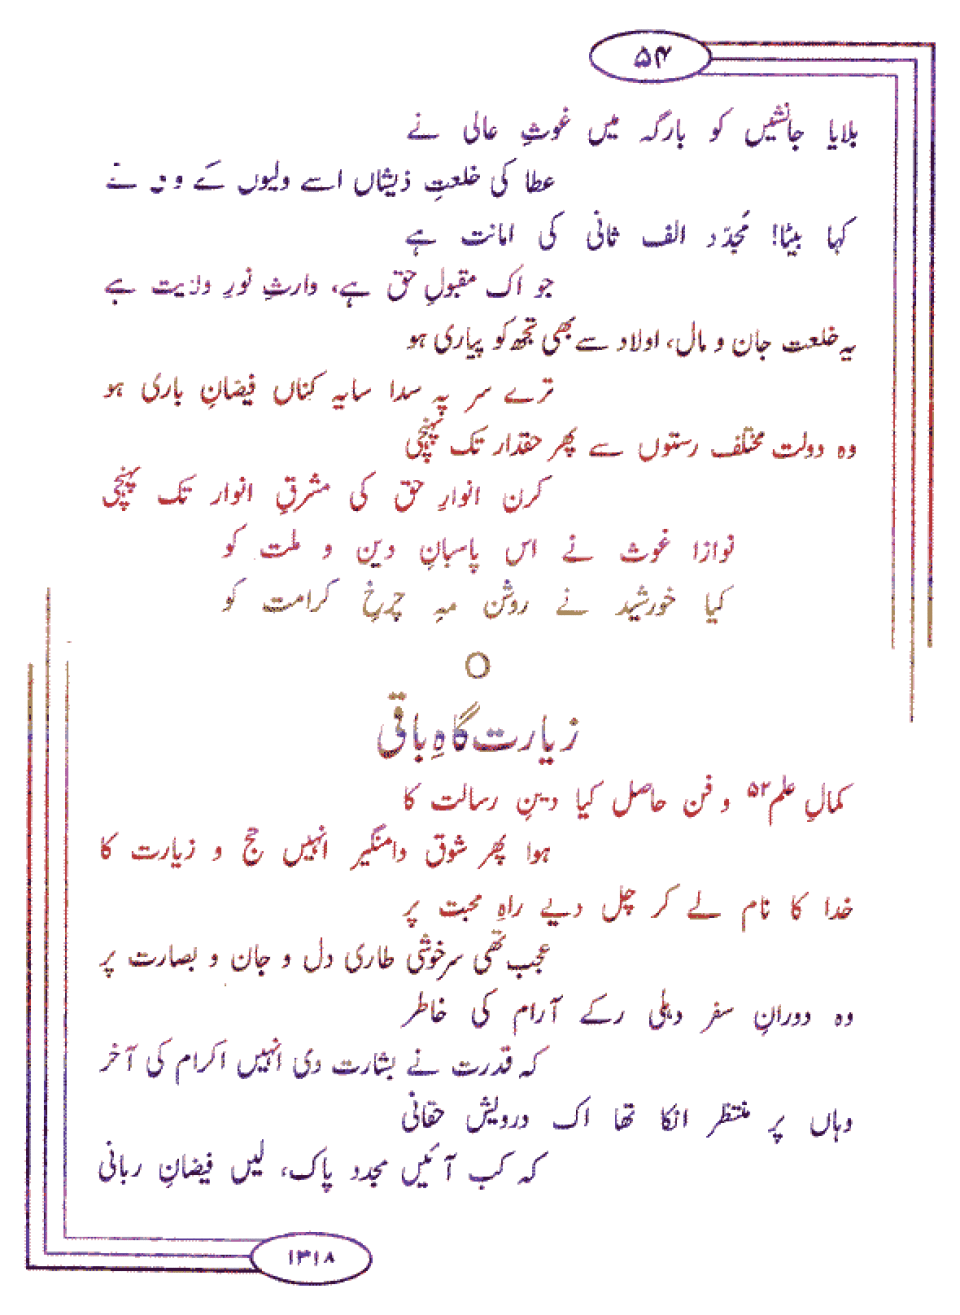 ۵۴
بلایا جانشیں کو بارگہ میں غوثِ عالی نے
عطا کی خلعتِ ذیشاں اسے ولیوں کے نے
کہا بیٹا! مُجدّد الف ثانی کی امانت ہے
جو اک مقبولِ حق ہے، وارثِ نورِ ولایت ہے
یہ خلعت جان و مال، اولاد سے بھی تجھ کو پیاری ہو
ترے سر پہ سدا سایہ کناں فیضانِ باری ہو
وہ دولت مختلف رستوں سے پھر حقدار تک پہنچی
کرن انوارِ حق کی مشرقِ انوار تک پہنچی
نوازا غوث نے اس پاسبانِ دین و ملت کو
کیا خورشید نے روشن مہِ چرخِ کرامت کو
زیارت گاہِ باقی
کمالِ علم۵۲ و فن حاصل کیا دینِ رسالت کا
ہوا پھر شوق دامنگیر انہیں حج و زیارت کا
خدا کا نام لے کر چل دیے راہِ محبت پر
عجب تھی سرخوشی طاری دل و جان و بصارت پر
وہ دورانِ سفر دہلی رکے آرام کی خاطر
کہ قدرت نے بشارت دی انہیں اکرام کی آخر
وہاں پر منتظر انکا تھا اک درویش حقانی
کہ کب آئیں مجدد پاک، لیں فیضانِ ربانی
۱۳۱۸